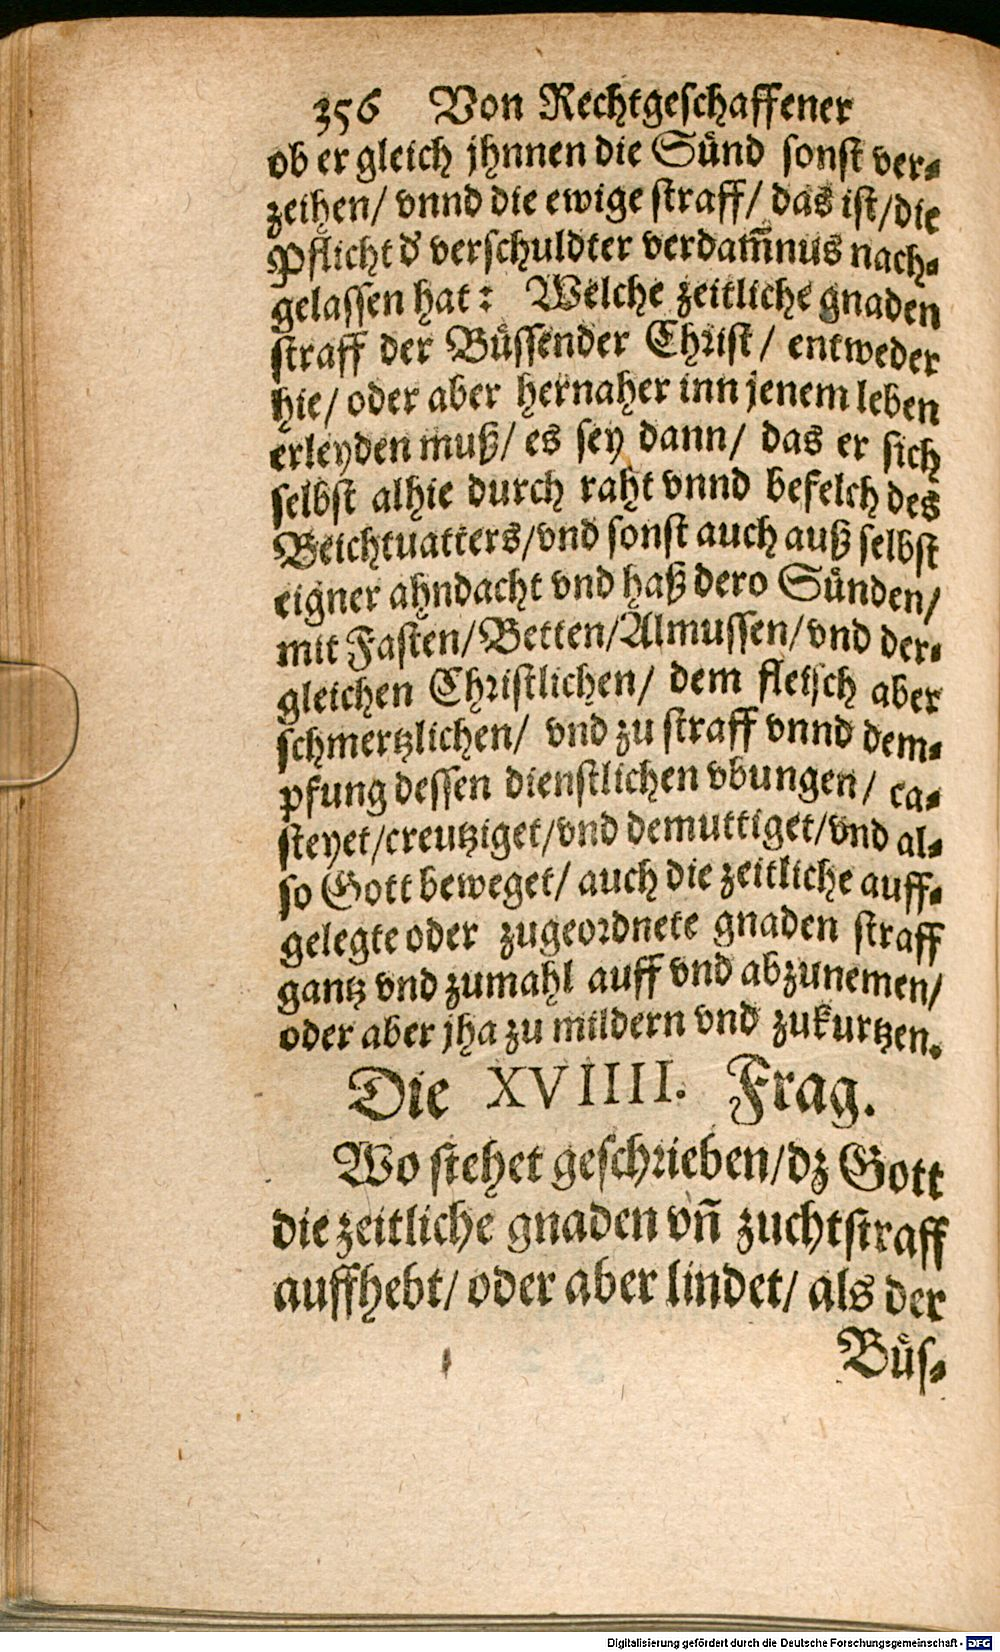 356 Von Rechtgeschaffener
ob er gleich jhnnen die Sünd sonst ver-
zeihen/ vnnd die ewige straff/ das ist/die
Pflicht d' verschuldter verdam̃nus nach-
gelassen hat: Welche zeitliche gnaden
straff der Büssender Christ/ entweder
hie/ oder aber hernaher inn jenem leben
erleyden muß/ es sey dann/ das er sich
selbst alhie durch raht vnnd befelch des
Beichtuatters/vnd sonst auch auß selbst
eigner ahndacht vnd haß dero Sünden/
mit Fasten/Betten/Almussen/vnd der-
gleichen Christlichen/ dem fleisch aber
schmertzlichen/ vnd zu straff vnnd dem-
pfung dessen dienstlichen vbungen/ ca-
steyet/creutziget/vnd demuttiget/vnd al-
so Gott beweget/ auch die zeitliche auff-
gelegte oder zugeordnete gnaden straff
gantz vnd zumahl auff vnd abzunemen/
oder aber jha zu mildern vnd zukurtzen.
Die XVIIII. Frag.
Wo stehet geschrieben/dz Gott
die zeitliche gnaden vñ zuchtstraff
auffhebt/ oder aber lindet/ als der
Büs-
Digitalisierung gefördert durch die Deutsche Forschungsgemeinschaft - DFG